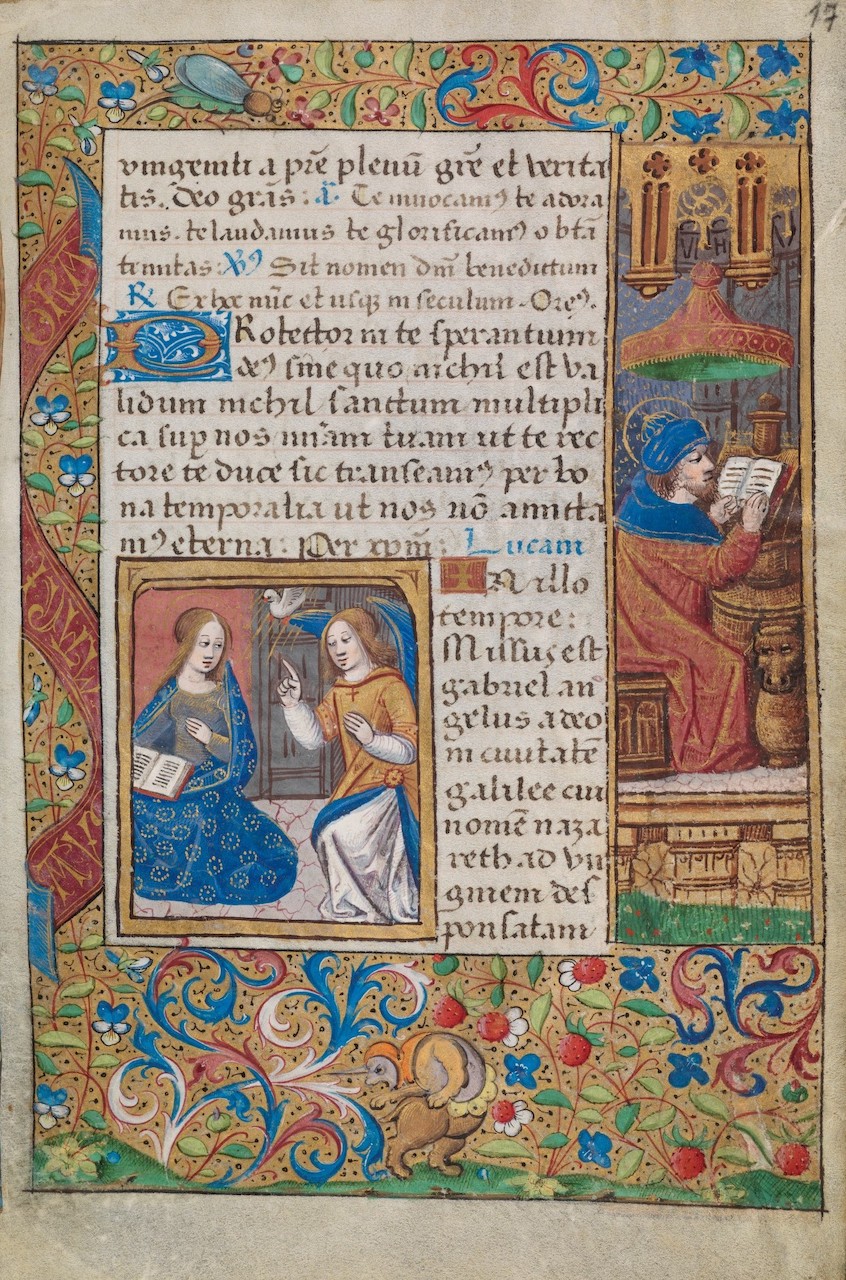 17
vnigeniti a pr̄e plenū gr̄e et verita
tis. Deo gr̄as: a̅. Te inuocamꝰ te adora
mus. te laudamus te glorificamꝰ o btā
trinitas: Vꝰ Sit nomen dnī benedictum
R̷ Ex hoc nūc et usqꝫ in seculum. Oreꝰ.
PRotector in te sperantium
deꝰ sine quo nichil est va
lidum nichil sanctum multipli
ca suꝑ nos miām tuam ut te rec
tore te duce sic transeamꝰ per bo
na temporalia ut nos nō amitta
mꝰ eterna: Per xpm̄: Lucam
IN illo
tempore:
Missus est
gabriel an
gelus a deo
in ciuitatē
galilee cui
nomē naza
reth ad vir
ginem des
ponsatam